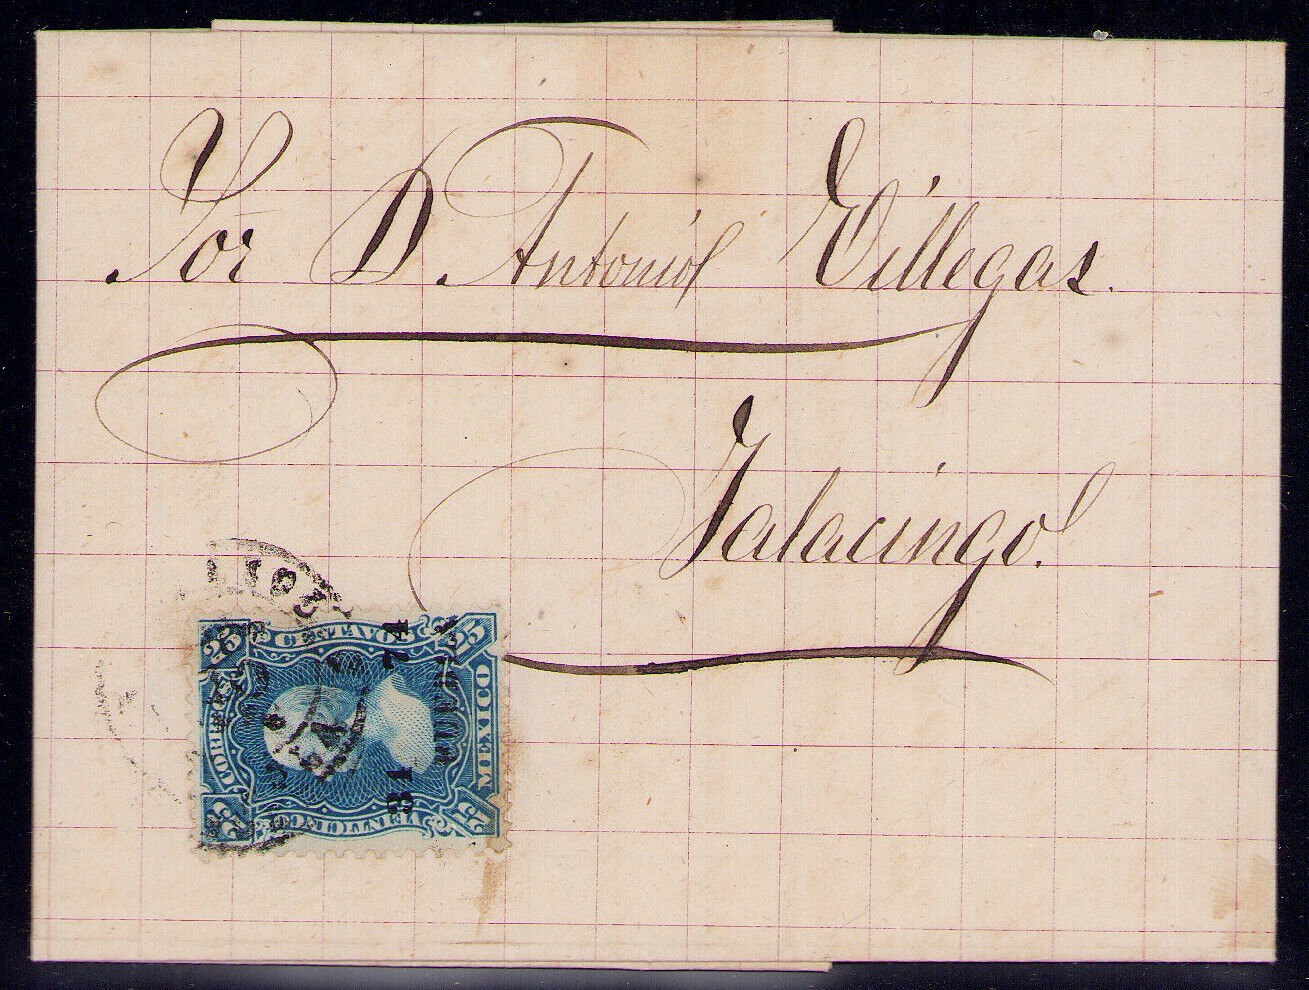 Sor D. Antonio Villegas.
Jalacingo.
25 CENTAVOS 25
CORREOS MEXICO
25 VEINTICINCO 25
31 74
PUEBLA